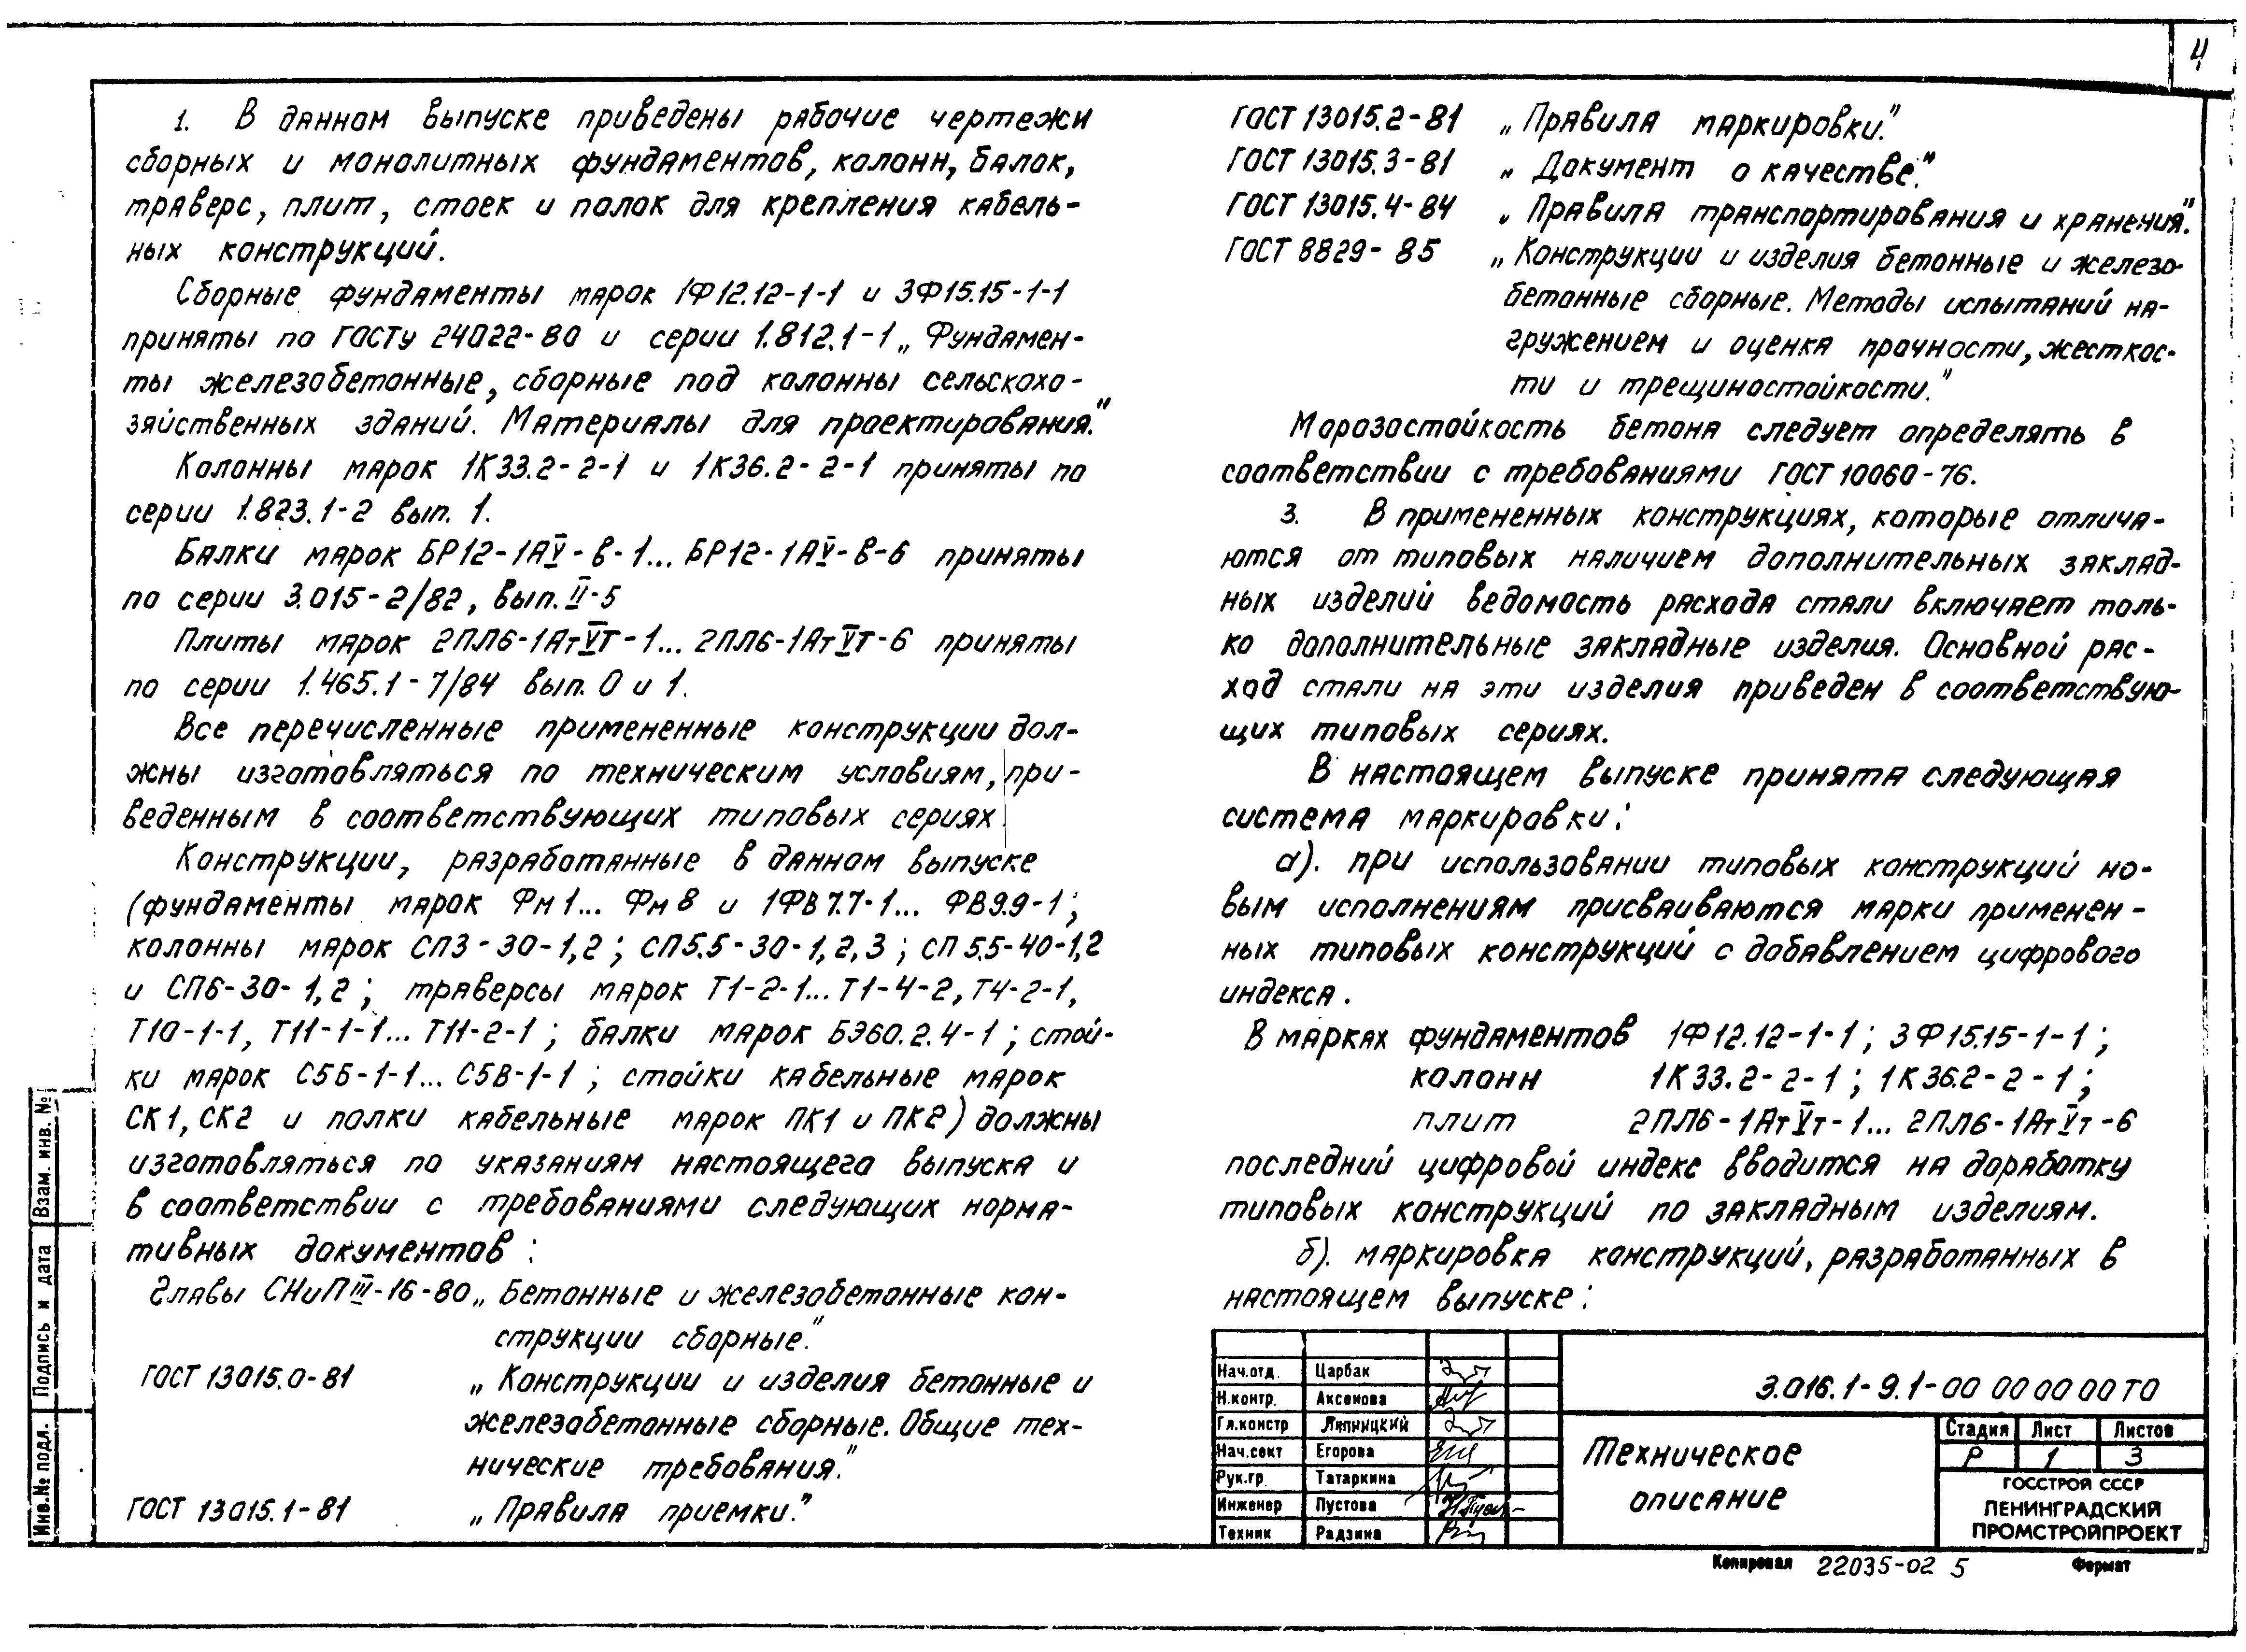 4
1. В данном выпуске приведены рабочие чертежи
сборных и монолитных фундаментов, колонн, балок,
траверс, плит, стоек и полок для крепления кабель-
ных конструкций.
Сборные фундаменты марок 1Ф12.12-1-1 и 3Ф15.15-1-1
приняты по ГОСТу 24022-80 и серии 1.812.1-1 „Фундамен-
ты железобетонные, сборные под колонны сельскохо-
зяйственных зданий. Материалы для проектирования."
Колонны марок 1К33.2-2-1 и 1К36.2-2-1 приняты по
серии 1.823.1-2 вып. 1.
Балки марок БР12-1АV-в-1... БР12-1АV-в-6 приняты
по серии 3.015-2/82, вып. II-5
Плиты марок 2ПЛ6-1АтVТ-1... 2ПЛ6-1АтVТ-6 приняты
по серии 1.465.1-7/84 вып. 0 и 1.
Все перечисленные примененные конструкции дол-
жны изготовляться по техническим условиям, при-
веденным в соответствующих типовых сериях
Конструкции, разработанные в данном выпуске
(фундаменты марок Фм1... Фм8 и 1ФВ7.7-1... ФВ9.9-1;
колонны марок СП3-30-1,2; СП5.5-30-1,2,3; СП5.5-40-1,2
и СП6-30-1,2; траверсы марок Т1-2-1... Т1-4-2, Т4-2-1,
Т10-1-1, Т11-1-1... Т11-2-1; балки марок БЭ60.2.4-1; стой-
ки марок С5Б-1-1... С5В-1-1; стойки кабельные марок
СК1, СК2 и полки кабельные марок ПК1 и ПК2) должны
изготовляться по указаниям настоящего выпуска и
в соответствии с требованиями следующих норма-
тивных документов:
Главы СНиП III-16-80 „Бетонные и железобетонные кон-
струкции сборные."
ГОСТ 13015.0-81 „Конструкции и изделия бетонные и
железобетонные сборные. Общие тех-
нические требования."
ГОСТ 13015.1-81 „Правила приемки."
ГОСТ 13015.2-81 „Правила маркировки."
ГОСТ 13015.3-81 „Документ о качестве."
ГОСТ 13015.4-84 „Правила транспортирования и хранения."
ГОСТ 8829-85 „Конструкции и изделия бетонные и железо-
бетонные сборные. Методы испытаний на-
гружением и оценка прочности, жесткос-
ти и трещиностойкости."
Морозостойкость бетона следует определять в
соответствии с требованиями ГОСТ 10060-76.
3. В примененных конструкциях, которые отлича-
ются от типовых наличием дополнительных заклад-
ных изделий ведомость расхода стали включает толь-
ко дополнительные закладные изделия. Основной рас-
ход стали на эти изделия приведен в соответствую-
щих типовых сериях.
В настоящем выпуске принята следующая
система маркировки:
а). при использовании типовых конструкций но-
вым исполнениям присваиваются марки применен-
ных типовых конструкций с добавлением цифрового
индекса.
В марках фундаментов 1Ф12.12-1-1; 3Ф15.15-1-1;
колонн 1К33.2-2-1; 1К36.2-2-1;
плит 2ПЛ6-1АтVт-1... 2ПЛ6-1АтVт-6
последний цифровой индекс вводится на доработку
типовых конструкций по закладным изделиям.
б). маркировка конструкций, разработанных в
настоящем выпуске:
Нач.отд. Царбак
Н.контр. Аксенова
Гл.констр Ляпницкий
Нач.сект Егорова
Рук.гр. Татаркина
Инженер Пустова
Техник Радзина
3.016.1-9.1-00 00 00 00 ТО
Техническое
описание
Стадия Лист Листов
Р 1 3
ГОССТРОЙ СССР
ЛЕНИНГРАДСКИЙ
ПРОМСТРОЙПРОЕКТ
Копировал 22035-02 5 Формат
Взам. инв. №
Подпись и дата
Инв.№ подл.